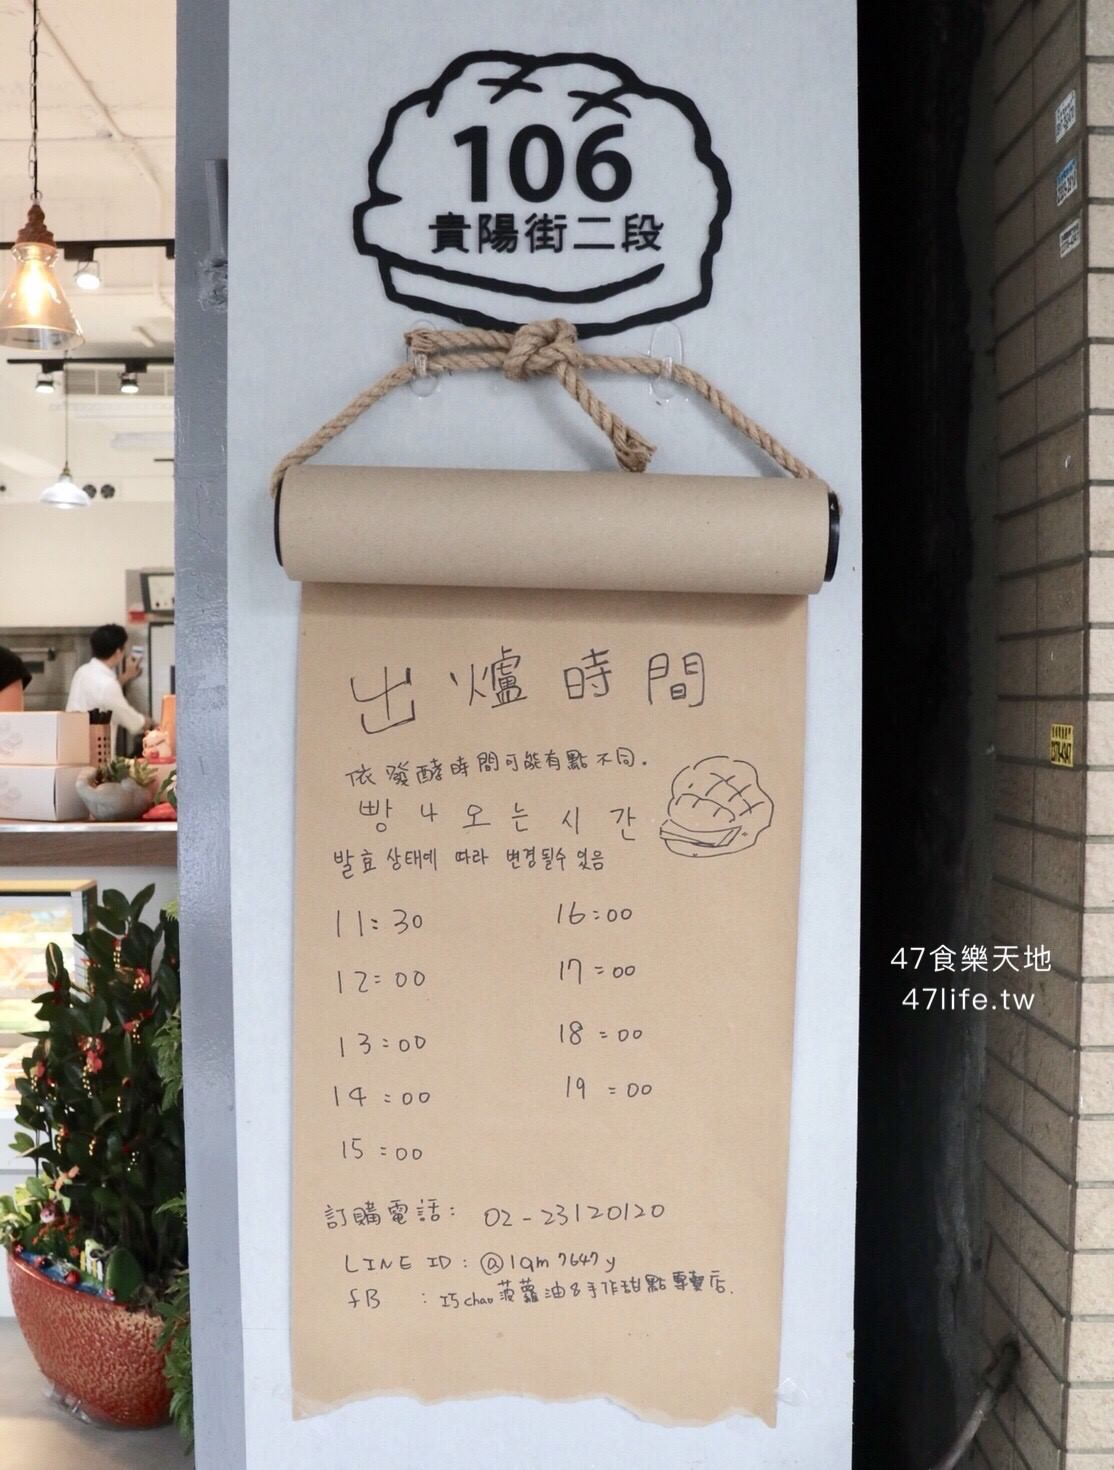 106
貴陽街二段
出爐時間
依發酵時間可能有點不同.
빵 나 오 는 시 간
발효 상태에 따라 변경될수 있음
11:30
12:00
13:00
14:00
15:00
16:00
17:00
18:00
19:00
訂購電話: 02-23120120
LINE ID: @lqm7647y
fB : 巧chao菠蘿油&手作甜點專賣店.
47食樂天地
47life.tw